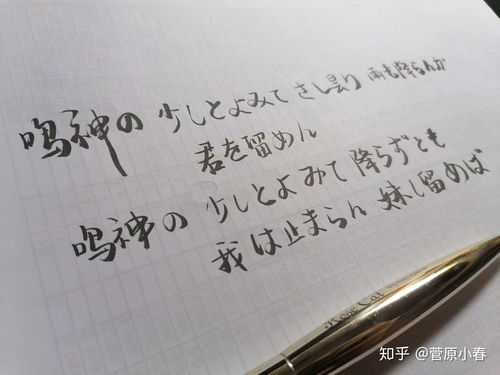 鳴神の 少しとよみて さし曇り 雨も降らんか
君を留めん
鳴神の 少しとよみて 降らずとも
我は止まらん 妹し留めば
Rose Cat
知乎 @菅原小春